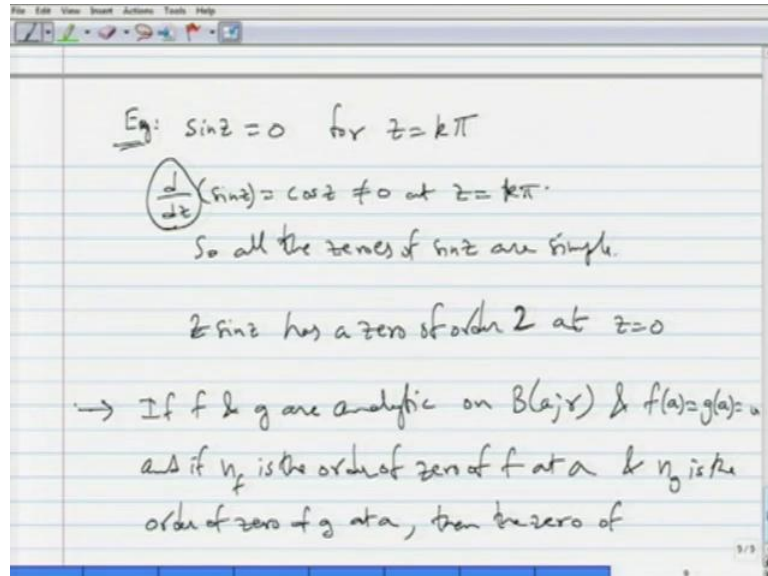 File Edit View Insert Actions Tools Help
Eg: sin z = 0 for z = kπ
d/dz (sin z) = cos z ≠ 0 at z = kπ.
So all the zeroes of sin z are simple.
z sin z has a zero of order 2 at z=0
→ If f & g are analytic on B(a;r) & f(a)=g(a)=
and if n_f is the order of zero of f at a & n_g is the
order of zero of g at a, then the zero of